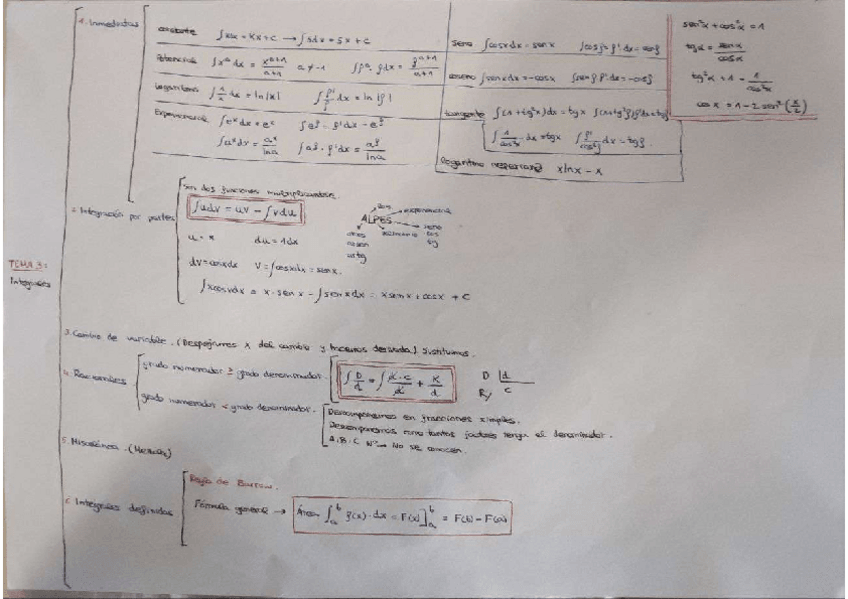 TEMA 3:
Integrales
1. Inmediatas
constante ∫K dx = Kx + C → ∫5dx = 5x + C
Potencial ∫xᵃ dx = xᵃ⁺¹/a+1 a ≠ -1 ∫fᵃ · f' dx = fᵃ⁺¹/a+1
Logaritmo ∫1/x dx = ln|x| ∫f'/f dx = ln|f|
Exponencial ∫eˣ dx = eˣ ∫eᶠ · f' dx = eᶠ
∫aˣ dx = aˣ/ln a ∫aᶠ · f' dx = aᶠ/ln a
seno ∫cosx dx = sen x ∫cosf · f' dx = senf
coseno ∫senx dx = -cosx ∫senf · f' dx = -cosf
tangente ∫(1 + tg²x)dx = tgx ∫(1+tg²f)f'dx = tgf
∫1/cos²x · dx = tgx ∫f'/cos²f dx = tgf.
logaritmo neperiano x lnx - x
sen²x + cos²x = 1
tgx = senx/cosx
cosx = 1 - 2 sen²(x/2)
2. Integración por partes
son dos funciones multiplicandose.
∫u dv = uv - ∫v du
ALPES
exponencial
seno
cos
tg
u = x du = 1dx
dv = cosxdx V = ∫cosxdx = senx.
∫xcosxdx = x · senx - ∫senxdx = xsenx + cosx + C
3. Cambio de variable. (Despejamos x del cambio y hacemos derivada) sustituimos.
4. Racionales
grado numerador ≥ grado denominador.
D | d
R c
grado numerador < grado denominador.
Descomponemos en fracciones simples.
Descomponemos como tantos factores tenga el denominador.
A, B, C Nº → No se conocen.
5. Miscelánea. (Mezcla)
6. Integrales definidas
Regla de Barrow.
Fórmula general → Área ∫ₐᵇ f(x) · dx = F(x)]ₐᵇ = F(b) - F(a)